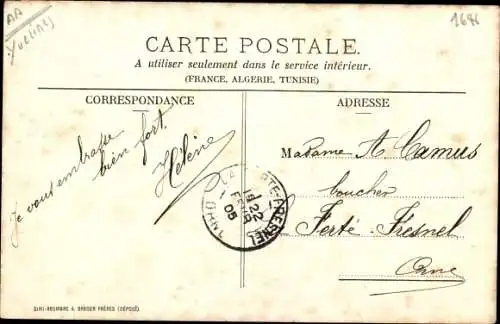 AA
Yvelines
1686
CARTE POSTALE.
A utiliser seulement dans le service intérieur.
(FRANCE, ALGERIE, TUNISIE)
CORRESPONDANCE
ADRESSE
Je vous embrasse
bien fort,
Hélène
Madame A. Camus
boucher
La Ferté-Fresnel
Orne
LA FERTE-FRESNEL
22
FEVR
05
ORNE
SIMI-BROMURE A. BREGER FRÈRES (DÉPOSÉ)